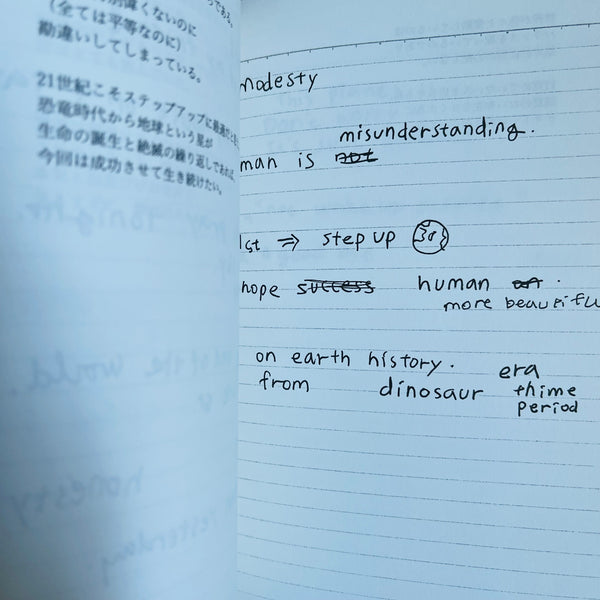 偉くないのに
(全ては平等なのに)
勘違いしてしまっている。
21世紀こそステップアップに
恐竜時代から地球という星が
生命の誕生と絶滅の繰り返しであれば、
今回は成功させて生き続けたい。
modesty
misunderstanding.
man is not
1st ⇒ step up
hope success human
more beautiful
on earth history.
era
from dinosaur thime
period